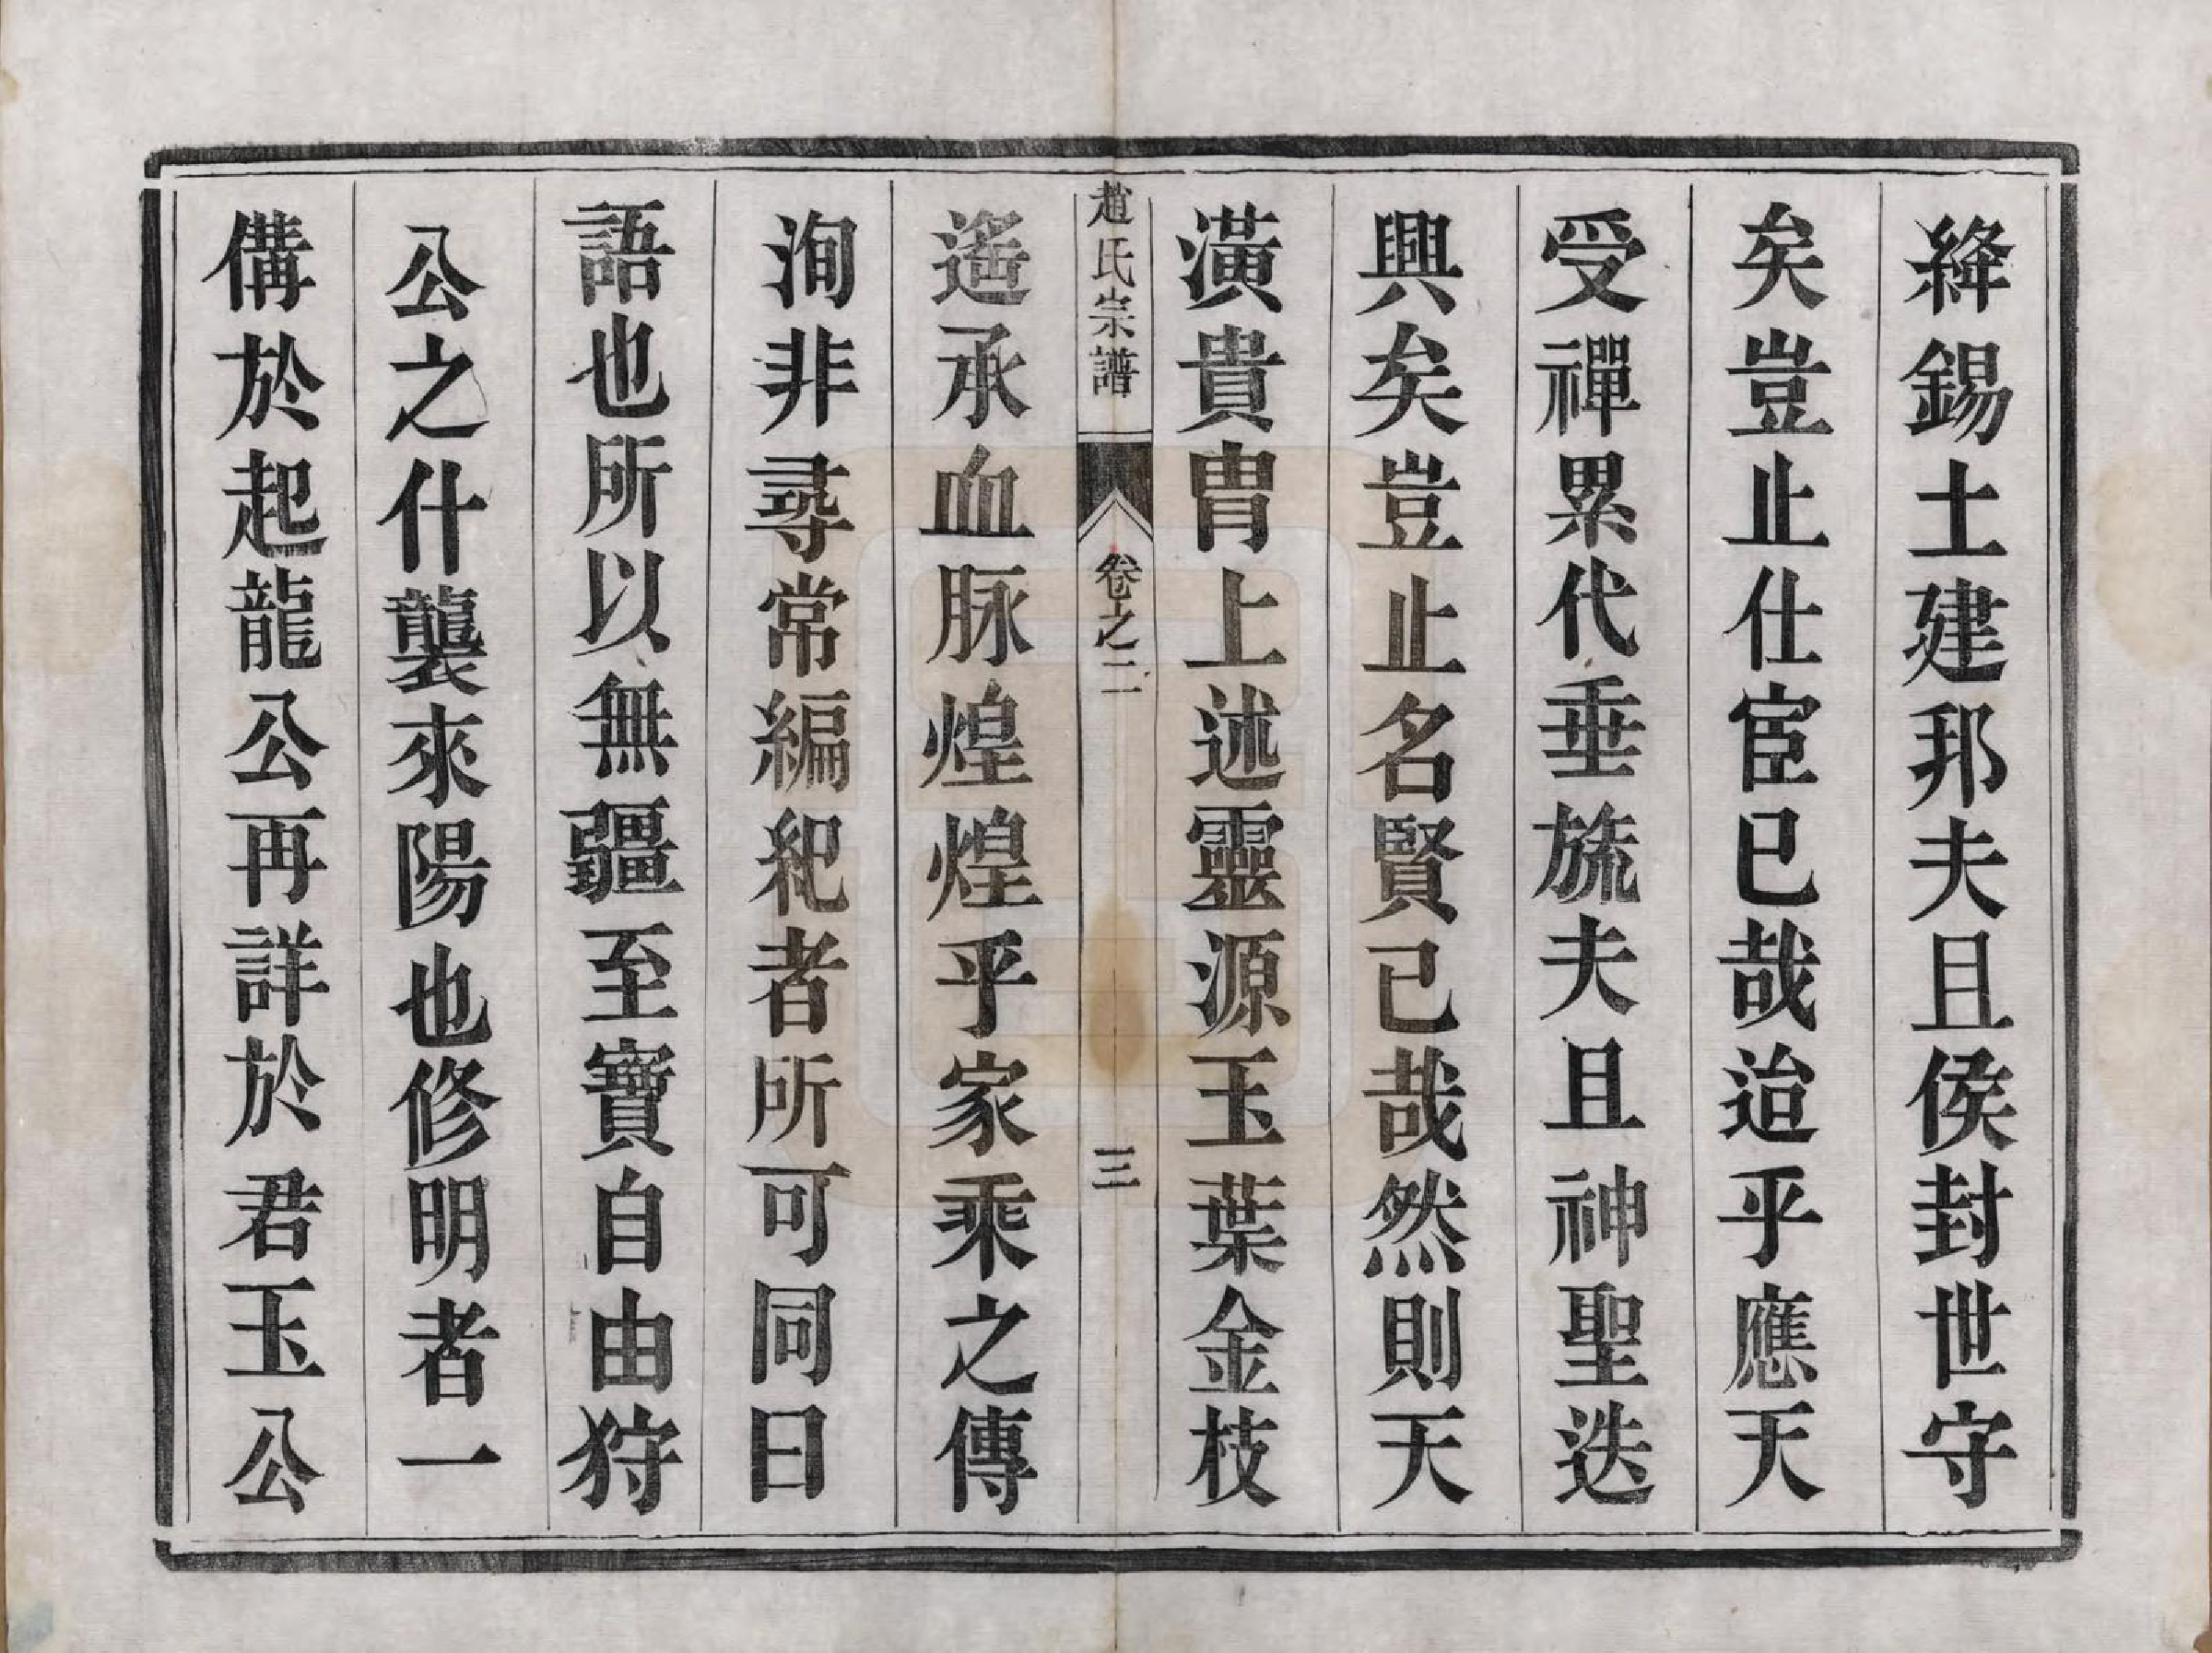 絳錫土建邦夫且侯封世守
矣豈止仕宦已哉迨乎應天
受禪累代垂旒夫且神聖迭
興矣豈止名賢已哉然則天
潢貴胄上述靈源玉葉金枝
趙氏宗譜 卷之二 三
遙承血脉煌煌乎家乘之傳
洵非尋常編紀者所可同日
語也所以無疆至寶自由狩
公之什襲來陽也修明者一
備於起龍公再詳於君玉公